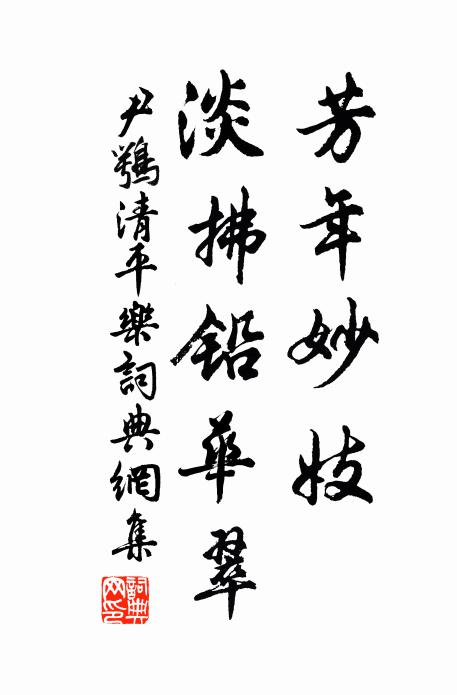 芳年妙妓
淡拂鉛華翠
尹鶚清平樂詞典網集
詞典網印